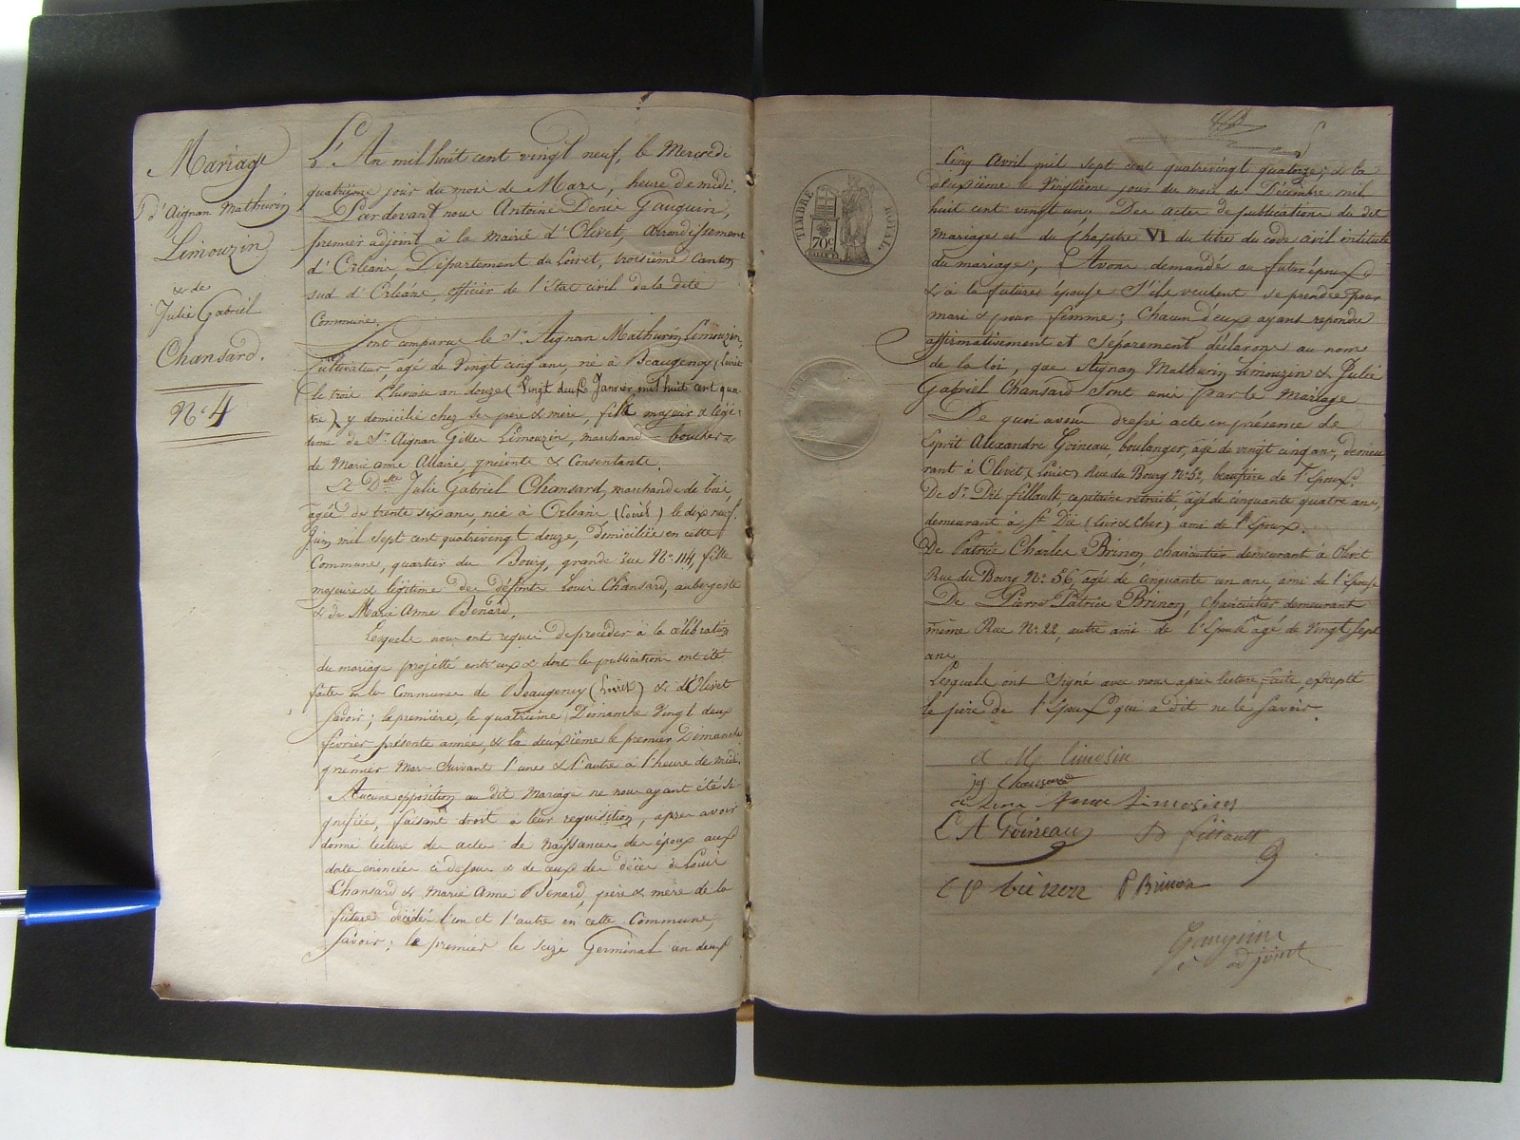 Mariage
d'Aignan Mathurin
Limouzin
& de
Julie Gabriel
Chansard.
N° 4
L'An mil huit cent vingt neuf, le Mercredi
quatrième jour du mois de Mars, heure de midi.
Pardevant nous Antoine Denis Gauguin,
premier adjoint à la mairie d'Olivet, arrondissement
d'Orléans, Département du Loiret, troisième Canton
sud d'Orléans, officier de l'état civil de la dite
Commune.
Sont comparus le Sr. Aignan Mathurin Limouzin,
Cultivateur, agé de Vingt cinq ans, né à Beaugency (Loiret
le trois Pluviose an douze (Vingt deux Janvier mil huit cent qua
tre), y domicilié chez ses père & mère, fils majeur & légi
time de Sr. Aignan Gilles Limouzin, marchand boucher &
de Marie anne Allaire, présents & Consentants.
& Dlle Julie Gabriel Chansard, marchande de bois,
agée de trente six ans, née à Orléans (Loiret) le dix neuf
Juin mil sept cent quatrevingt douze, Domiciliée en cette
Commune, quartier du Bourg, grande rue N° 114, fille
majeure & légitime des défunts Louis Chansard, aubergiste
& de Marie Anne Benard.
Lesquels nous ont requis de procéder à la célébration
du mariage projetté entr'eux & dont les publications ont été
faites en les Communes de Beaugency (Loiret) & d'Olivet
Savoir; la première, le quatrième Dimanche Vingt deux
février présente année, & la deuxième le premier Dimanche
premier Mars Suivant l'une & l'autre à l'heure de midi.
Aucune opposition au dit Mariage ne nous ayant été si
gnifiée, faisant droit à leur requisition, après avoir
donné lecture des actes de Naissances des époux aux
dates énoncées ci dessus & de ceux des décès de Louis
Chansard & Marie Anne Benard, père & mère de la
future décédés l'un et l'autre en cette Commune,
Savoir; le premier le seize Germinal an deux
TIMBRE ROYAL
70c
Cinq Avril mil sept cent quatrevingt quatorze; & la
deuxième le Vingtième jour du mois de Décembre mil
huit cent vingt un, Des actes de publications du dit
mariage et du Chapitre VI du titre du code civil intitulé
du mariage, Avons demandé au futur époux
& à la future épouse S'ils veulent se prendre pour
mari & pour femme; Chacun d'eux ayant repondu
affirmativement et Séparement déclarons au nom
de la loi, que Aignan Mathurin Limouzin & Julie
Gabriel Chansard Sont unis par le Mariage
De quoi avons dressé acte en présence de
Esprit Alexandre Goineau, boulanger, agé de vingt cinq ans, demeu
rant à Olivet, (Loiret) Rue du Bourg N° 52, beaufrère de l'Epoux.
De Sr. Dié fillault capitaine retraité, agé de cinquante quatre ans,
demeurant à St. Dié (Loir & Cher) ami de l'Epoux.
De Patrice Charles Brinon, charcutier demeurant à Olivet
Rue du Bourg N° 56, agé de cinquante un ans, ami de l'Epouse
De Pierre Patrice Brinon, Charcutier demeurant
même Rue N° 22, autre ami de l'Epouse agé de Vingt Sept
ans.
Lesquels ont Signé avec nous après lecture faite, excepté
le père de l'Epoux qui a dit ne le Savoir.
a M limosin
jg Chansard
Anne Limosin
E A Goineau D fillault
C P brinon P Brinon
Gauguin
adjoint